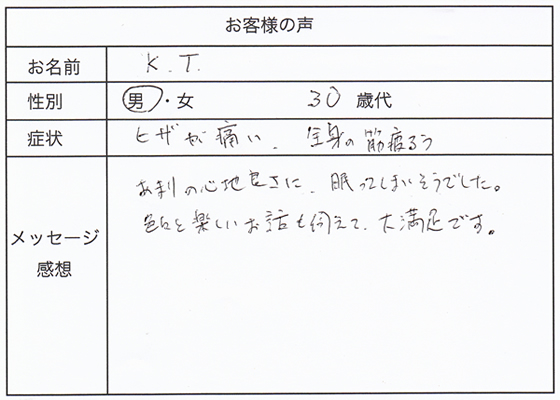 お客様の声
お名前 K.T.
性別 男・女 30 歳代
症状 ヒザが痛い、全身の筋疲ろう
あまりの心地良さに、眠ってしまいそうでした。
色々と楽しいお話も伺えて、大満足です。
メッセージ
感想